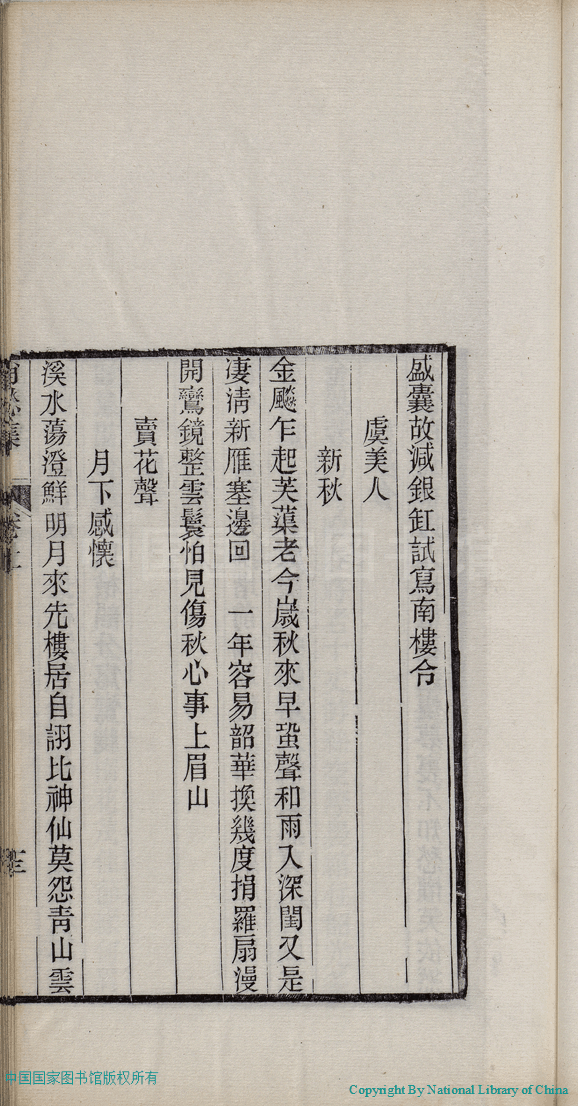 盛囊故減銀缸試寫南樓令
虞美人
新秋
金飈乍起芙蕖老今歲秋來早蛩聲和雨入深閨又是
凄清新雁塞邊回　一年容易韶華換幾度捐羅扇漫
開鸞鏡整雲鬟怕見傷秋心事上眉山
賣花聲
月下感懷
溪水蕩澄鮮明月來先樓居自詡比神仙莫怨青山雲
中国国家图书馆版权所有
Copyright By National Library of China